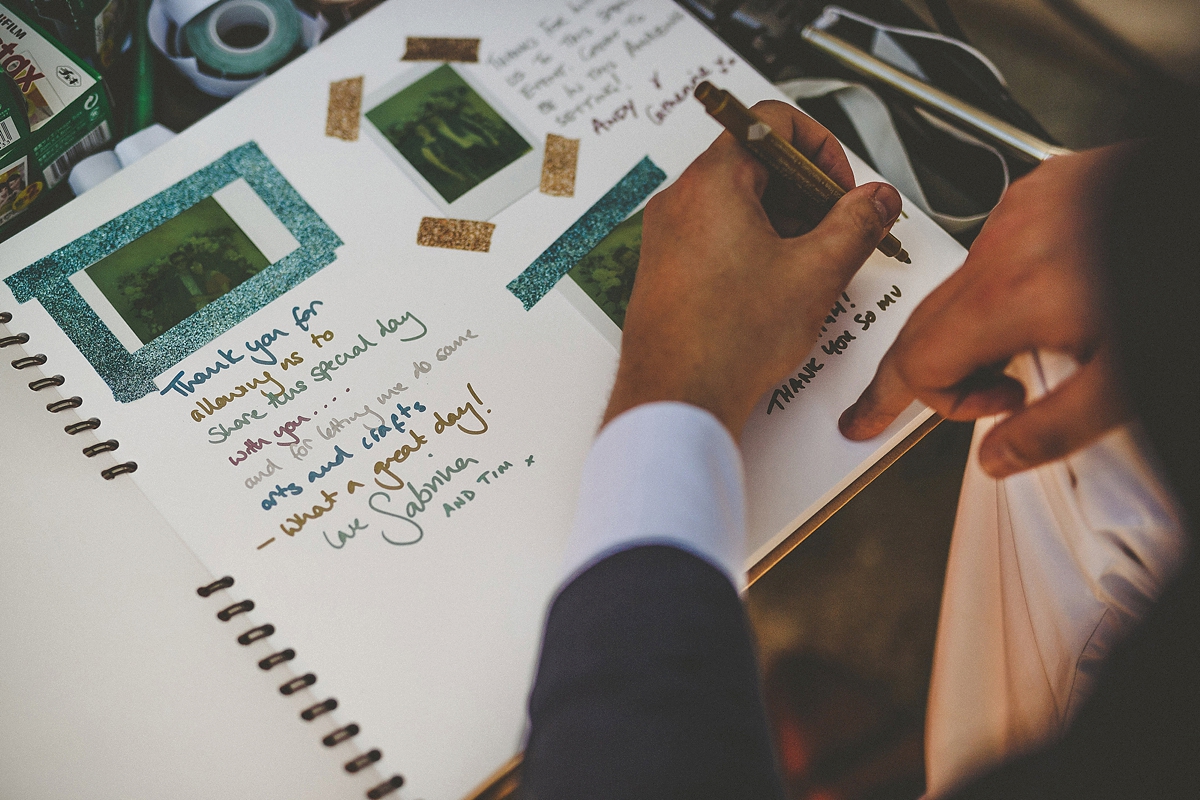 FUJIFILM
instax
THANKS FOR
US TO THIS
EVENT. GREAT TO
BE IN THIS AWESOME
SETTING!
ANDY &
Catherine xx
Thank you for
allowing us to
share this special day
with you....
and for letting me do some
arts and crafts
- what a great day!
Love Sabrina
AND TIM x
THANK YOU SO MU